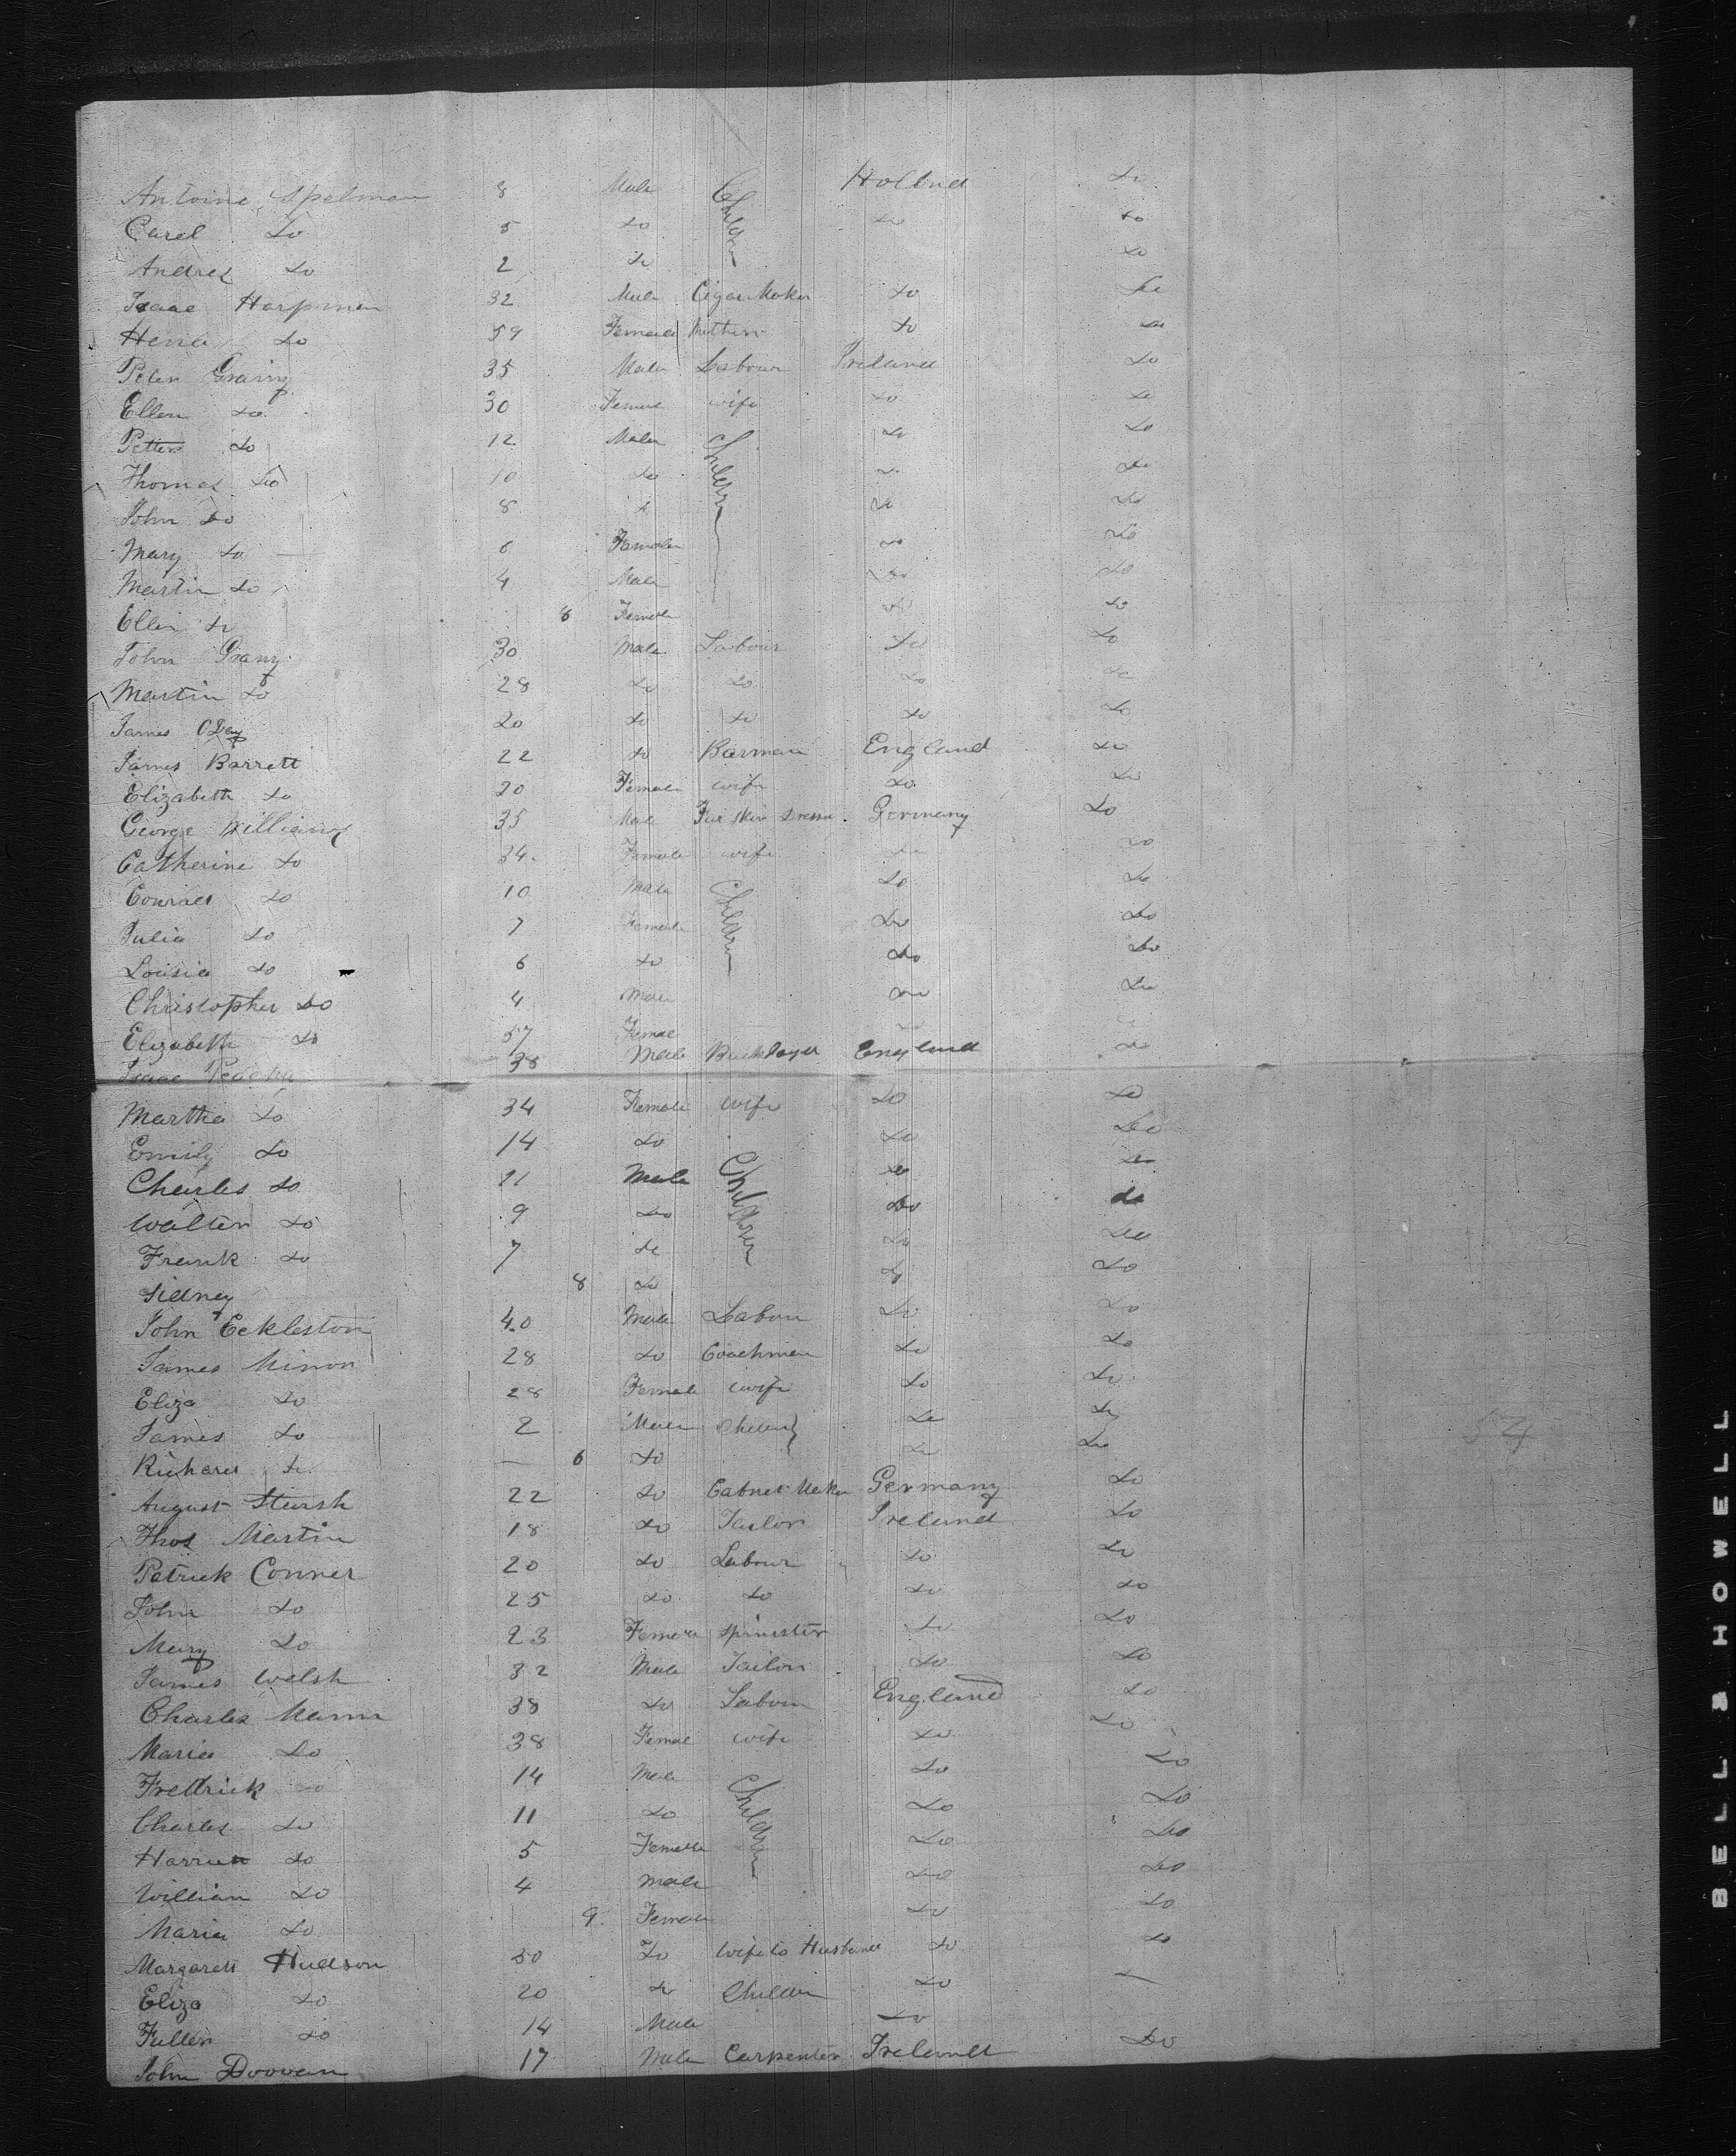 Antoine Spelman 8 Male Children Holland do
Carel do 5 do do do
Andres do 2 do do
Isaac Harpman 32 Male Cigar Maker do do
Hena do 59 Female Mother do do
Peter Grainy 35 Male Labour Ireland do
Ellen do 30 Female wife do do
Petter do 12 Male Children do do
Thomas do 10 do do do
John do 8 do do do
Mary do 6 Female do do
Martin do 4 Male do do
Ellen do 8 Female do do
John Grany 30 Male Labour do do
Martin do 28 do do do do
James O Day 20 do do do do
James Barrett 22 do Barman England do
Elizabeth do 20 Female wife do do
George Williams 35 Male Fur skin Dresser Germany do
Catherine do 34 Female wife do do
Conrad do 10 Male Children do do
Julia do 7 Female do do
Louisia do 6 do do do
Christopher do 4 Male do do
Elizabeth do 57 Female do do
Isaac 38 Male Bricklayer England do
Martha do 34 Female wife do do
Emily do 14 do do do
Charles do 11 Male Children do do
Walter do 9 do do do
Frank do 7 do do do
Sidney 8 do do do
John Eckleston 40 Male Labour do do
James Minon 28 do Coachman do do
Eliza do 28 Female wife do do
James do 2 Male Children do do
Richard do — 6 do do do
August Stursh 22 do Cabnet Maker Germany do
Thos Martin 18 do Tailor Ireland do
Patrick Conner 20 do Labour do do
John do 25 do do do do
Mary do 23 Female Spinster do do
James Welsh 32 Male Tailor do do
Charles Mann 38 do Labour England do
Maria do 38 Female wife do do
Fredrick do 14 Male Children do do
Charles do 11 do do do
Harriett do 5 Female do do
William do 4 Male do do
Maria do 9 Female do do
Margarett Hudson 50 do wife to Husband do do
Eliza do 20 do Children do
Fuller do 14 Male do
John Doovan 17 Male Carpenter Ireland do
54
BELL & HOWELL